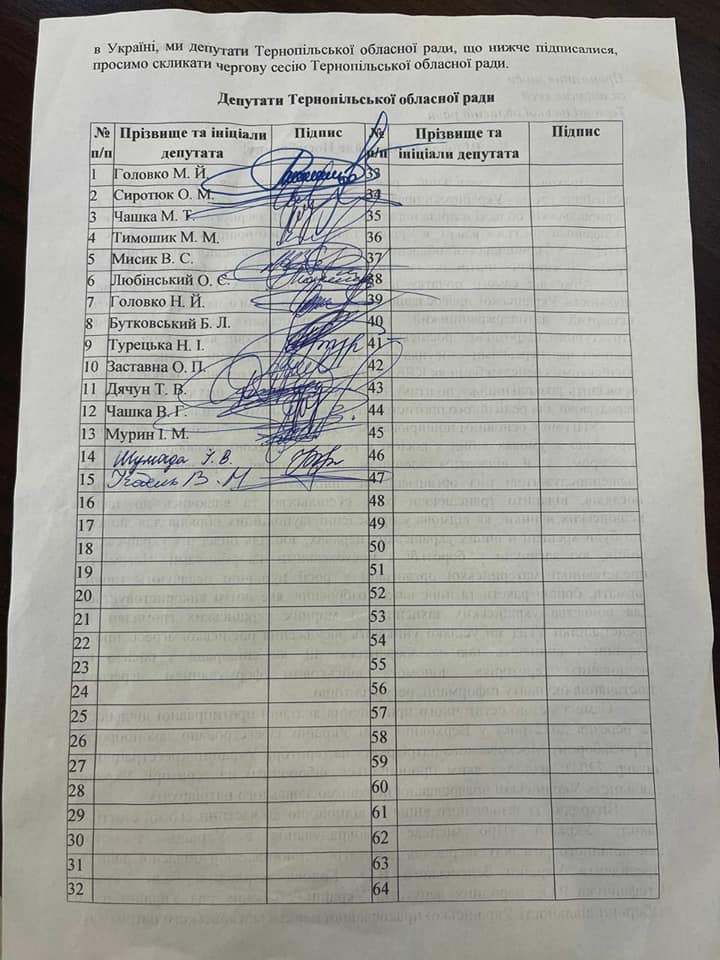 в Україні, ми депутати Тернопільської обласної ради, що нижче підписалися,
просимо скликати чергову сесію Тернопільської обласної ради.
Депутати Тернопільської обласної ради
№ п/п Прізвище та ініціали депутата Підпис № п/п Прізвище та ініціали депутата Підпис
1 Головко М. Й. 33
2 Сиротюк О. М. 34
3 Чашка М. Т. 35
4 Тимошик М. М. 36
5 Мисик В. С. 37
6 Любінський О. Є. 38
7 Головко Н. Й. 39
8 Бутковський Б. Л. 40
9 Турецька Н. І. 41
10 Заставна О. П. 42
11 Дячун Т. В. 43
12 Чашка В. Г. 44
13 Мурин І. М. 45
14 Шумада І. В. 46
15 В. М 47
16 48
17 49
18 50
19 51
20 52
21 53
22 54
23 55
24 56
25 57
26 58
27 59
28 60
29 61
30 62
31 63
32 64